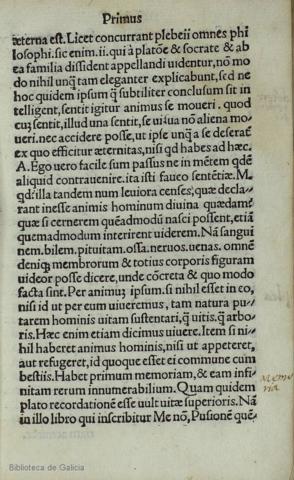 Primus
æterna est. Licet concurrant plebeii omnes phi
losophi. sic enim. ii. qui à platõe & socrate & ab
ea familia dissident appellandi uidentur, nõ mo
do nihil unq̃ tam eleganter explicabunt, sed ne
hoc quidem ipsum q̃ subtiliter conclusum sit in
telligent, sentit igitur animus se moueri. quod
cuʒ sentit, illud una sentit, se ui sua nõ aliena mo
ueri. nec accidere posse, ut ipse unq̃ a se deserat̃
ex quo efficitur æternitas, nisi qd habes ad hæc.
A. Ego uero facile sum passus ne in mẽtem qdẽ
aliquid contrauenire. ita isti fauco sentẽtiæ. M.
qd: illa tandem num leuiora censes, quæ decla-
rant inesse animis hominum diuina quædam:
quæ si cernerem quẽadmodũ nasci possent, etiã
quemadmodum interirent uiderem. Nã sangui
nem. bilem. pituitam. ossa. neruos. uenas. omnẽ
deniq; membrorum & totius corporis figuram
uideor posse dicere, unde cõcreta & quo modo
facta sint. Per animuʒ ipsum. si nihil esset in eo,
nisi id ut per eum uiueremus, tam natura pu-
tarem hominis uitam sustentari, q̃ uitis. q̃ arbo-
ris. Hæc enim etiam dicimus uiuere. Item si ni-
hil haberet animus hominis, nisi ut appeteret,
aut refugeret, id quoque esset ei commune cum
bestiis. Habet primum memoriam, & eam infi-
nitam rerum innumerabilium. Quam quidem
plato recordationẽ esse uult uitæ superioris. Nã
in illo libro qui inscribitur Me nõ, Pusionẽ quẽ-
Memo
ria
Biblioteca de Galicia